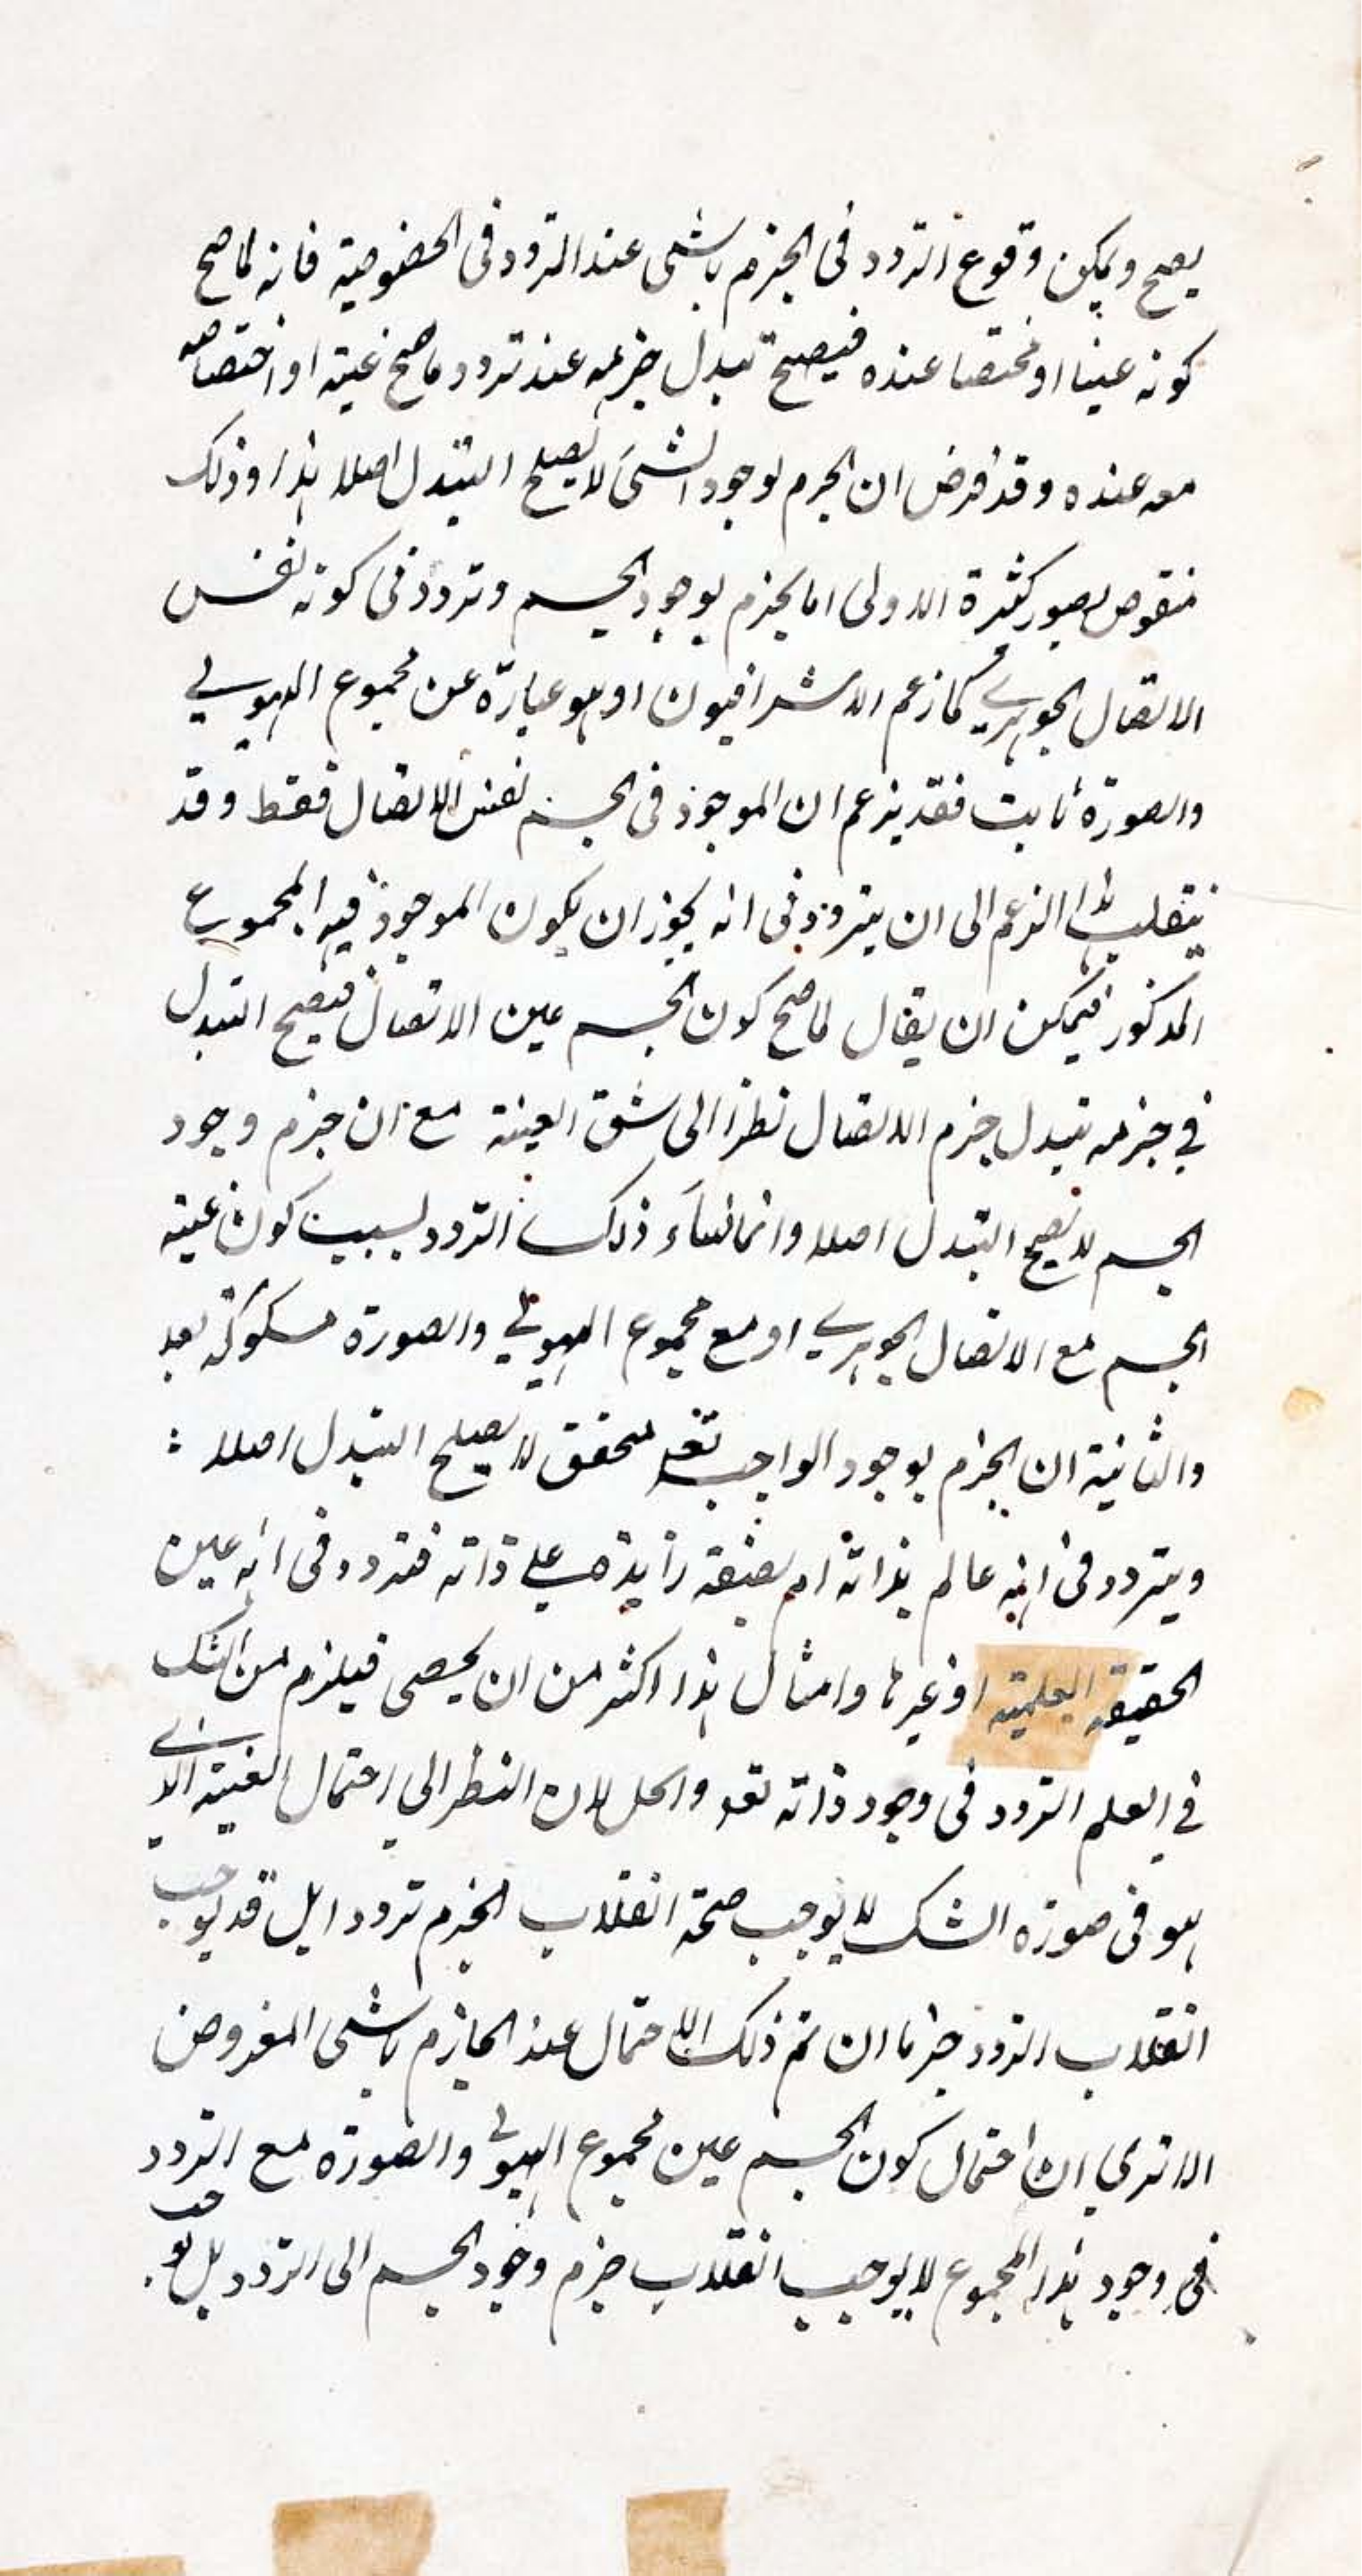 يصح ويمكن وقوع التردد فى الجزم بالشى عند التردد فى الخصوصية فانه لما صح
كونه عينا او مختصا عنده فيصح تبدل جزمه عند تردد ما صح عينيه او اختصاصه
معه عنده وقد فرض ان الجزم لوجود الشئ لا يصلح التبدل اصلا هذا وذلك
منقوض بصور كثيرة الاولى انا نجزم بوجود الجسم ونتردد فى كونه نفس
الاتصال الجوهرے كما زعم الاشراقيون او هو عبارة عن مجموع الهيولے
والصورة ثابت فقد يزعم ان الموجود فى الجسم نفس الاتصال فقط وقد
ينقلب هذا الزعم الى ان يتردد فى انه يجوز ان يكون الموجود فيه المجموع
المذكور فيمكن ان يقال لما صح كون الجسم عين الاتصال فيصح التبدل
في جزمه بتبدل جزم الاتصال نظرا الى شق العينية مع ان جزم وجود
الجسم لا يصح التبدل اصلا وانما نشاء ذلك التردد بسبب كون عينية
الجسم مع الاتصال الجوهرے او مع مجموع الهيولے والصورة مشكوكة بعد
والثانية ان الجزم بوجود الواجب تعه متحقق لا يصلح التبدل اصلا :
ويتردد فى انه عالم بذاته ام بصفة زايدة على ذاته فتردد فى انه عين
الحقيقه العلمية او غيرها وامثال هذا اكثر من ان يحصى فيلزم من الشك
في العلم التردد فى وجود ذاته تعه والحل لان النظر الي احتمال العينية الذے
هو فى صورة الشك لا يوجب صحة انقلاب الجزم ترددا بل قد يوجب
انقلاب التردد جزما ان تم ذلك الاحتمال عند الجازم بالشى المفروض
الا تري ان احتمال كون الجسم عين مجموع الهيولے والصورة مع التردد
فى وجود هذا المجموع لا يوجب انقلاب جزم وجود الجسم الى التردد بل يوجب